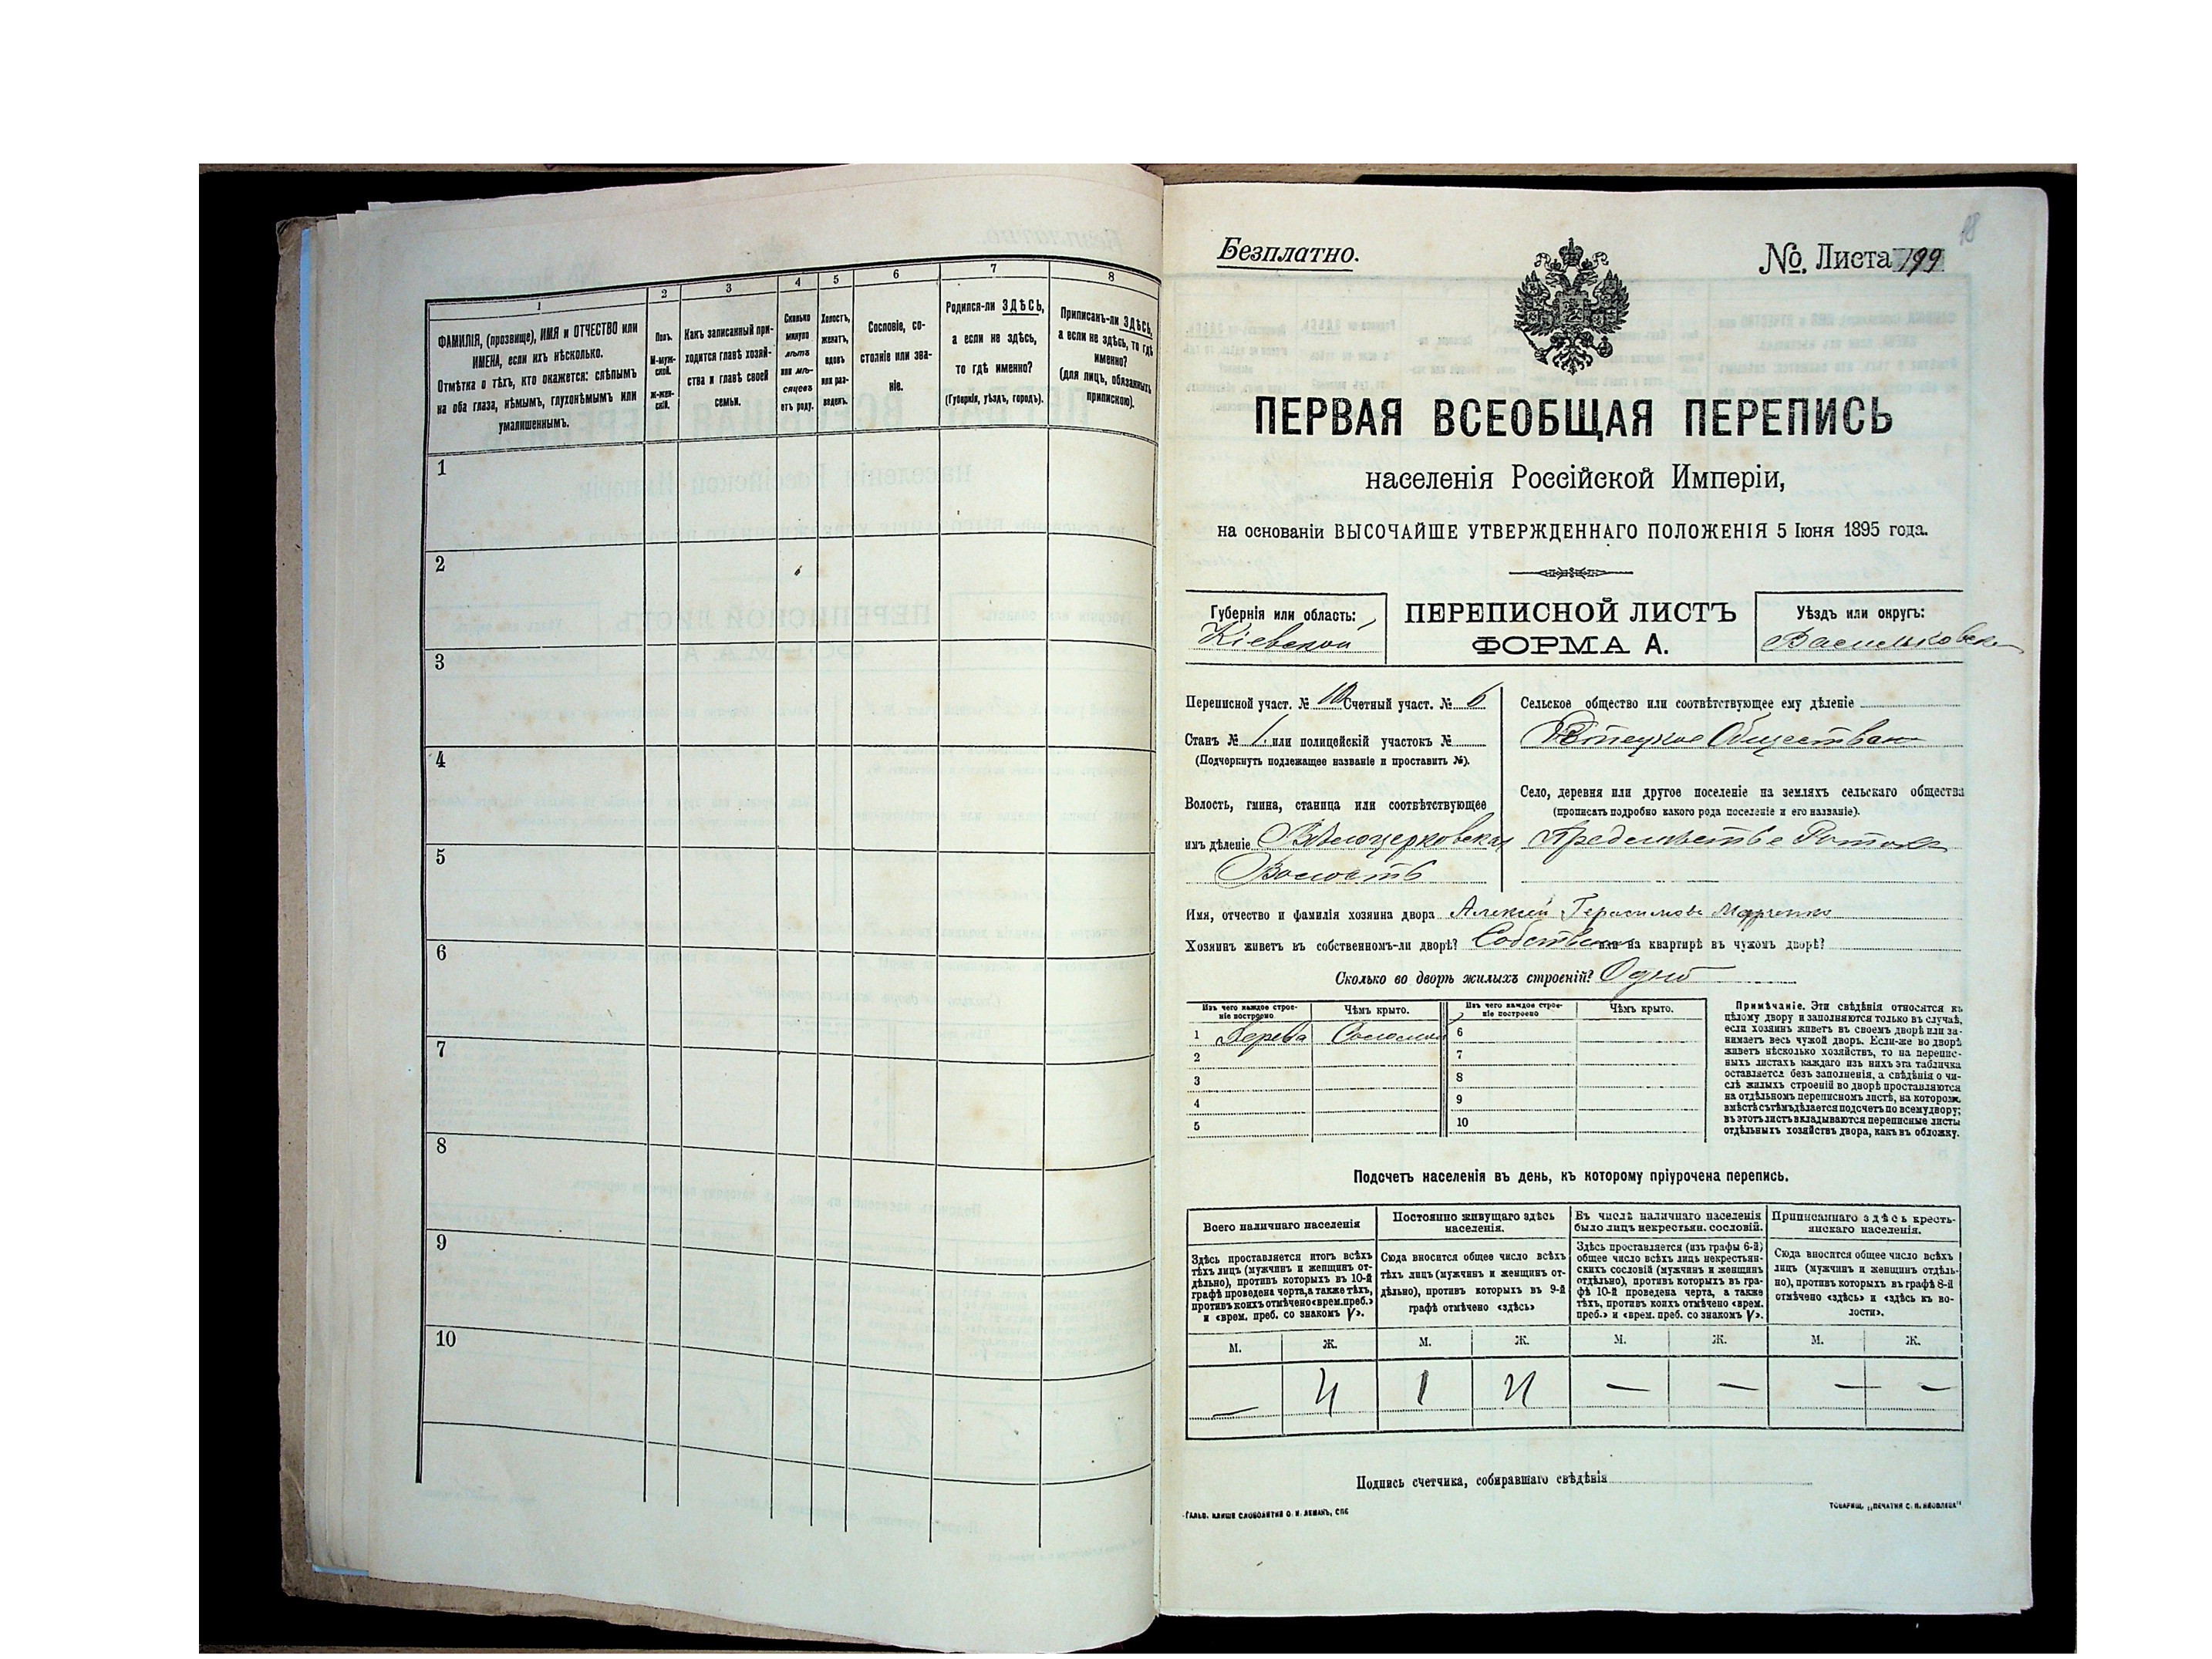 1
2
3
4
5
6
7
8
ФАМИЛІЯ, (прозвище), ИМЯ и ОТЧЕСТВО или
ИМЕНА, если ихъ нѣсколько.
Отмѣтка о тѣхъ, кто окажется: слѣпымъ
на оба глаза, нѣмымъ, глухонѣмымъ или
умалишеннымъ.
Полъ.
М-муж-
ской.
Ж-жен-
скій.
Какъ записанный при-
ходится главѣ хозяй-
ства и главѣ своей
семьи.
Сколько
минуло
лѣтъ
или мѣ-
сяцевъ
отъ роду.
Холостъ,
женатъ,
вдовъ
или раз-
веденъ.
Сословіе, со-
стояніе или зва-
ніе.
Родился-ли ЗДѢСЬ,
а если не здѣсь,
то гдѣ именно?
(Губернія, уѣздъ, городъ).
Приписанъ-ли ЗДѢСЬ,
а если не здѣсь, то гдѣ
именно?
(для лицъ, обязанныхъ
припискою).
1
2
3
4
5
6
7
8
9
10
98
Безплатно.
№ Листа 199
ПЕРВАЯ ВСЕОБЩАЯ ПЕРЕПИСЬ
населенія Россійской Имперіи,
на основаніи ВЫСОЧАЙШЕ УТВЕРЖДЕННАГО ПОЛОЖЕНІЯ 5 Іюня 1895 года.
Губернія или область:
Кіевской
ПЕРЕПИСНОЙ ЛИСТЪ
ФОРМА А.
Уѣздъ или округъ:
Васильковск
Переписной участ. № 10 Счетный участ. № 6
Станъ № 1. или полицейскій участокъ №
(Подчеркнуть подлежащее названіе и проставить №).
Волость, гмина, станица или соотвѣтствующее
имъ дѣленіе Бѣлоцерковская
Волость
Сельское общество или соотвѣтствующее ему дѣленіе
Село, деревня или другое поселеніе на земляхъ сельскаго общества
(прописать подробно какого рода поселеніе и его названіе).
Предмѣстье
Имя, отчество и фамилія хозяина двора Алексѣй Герасимовъ Марченко
Хозяинъ живетъ въ собственномъ-ли дворѣ? или на квартирѣ въ чужомъ дворѣ?
Сколько во дворѣ жилыхъ строеній? Одно
Изъ чего каждое строе-
ніе построено
Чѣмъ крыто.
Изъ чего каждое строе-
ніе построено
Чѣмъ крыто.
1 Дерева Соломой
2
3
4
5
6
7
8
9
10
Примѣчаніе. Эти свѣдѣнія относятся къ
цѣлому двору и заполняются только въ случаѣ,
если хозяинъ живетъ въ своемъ дворѣ или за-
нимаетъ весь чужой дворъ. Если-же во дворѣ
живетъ нѣсколько хозяйствъ, то на перепис-
ныхъ листахъ каждаго изъ нихъ эта табличка
оставляется безъ заполненія, а свѣдѣнія о чи-
слѣ жилыхъ строеній во дворѣ проставляются
на отдѣльномъ переписномъ листѣ, на которомъ
вмѣстѣ съ тѣмъ дѣлается подсчетъ по всему двору;
въ этотъ листъ вкладываются переписные листы
отдѣльныхъ хозяйствъ двора, какъ въ обложку.
Подсчетъ населенія въ день, къ которому пріурочена перепись.
Всего наличнаго населенія
Здѣсь проставляется итогъ всѣхъ
тѣхъ лицъ (мужчинъ и женщинъ от-
дѣльно), противъ которыхъ въ 10-й
графѣ проведена черта, а также тѣхъ,
противъ коихъ отмѣчено «врем. преб.»
и «врем. преб. со знакомъ V».
Постоянно живущаго здѣсь
населенія.
Сюда вносится общее число всѣхъ
тѣхъ лицъ (мужчинъ и женщинъ от-
дѣльно), противъ которыхъ въ 9-й
графѣ отмѣчено «здѣсь»
Въ числѣ наличнаго населенія
было лицъ некрестьян. сословій.
Здѣсь проставляется (изъ графы 6-й)
общее число всѣхъ лицъ некрестьян-
скихъ сословій (мужчинъ и женщинъ
отдѣльно), противъ которыхъ въ гра-
фѣ 10-й проведена черта, а также
тѣхъ, противъ коихъ отмѣчено «врем.
преб.» и «врем. преб. со знакомъ V».
Приписаннаго здѣсь кресть-
янскаго населенія.
Сюда вносится общее число всѣхъ
лицъ (мужчинъ и женщинъ отдѣль-
но), противъ которыхъ въ графѣ 8-й
отмѣчено «здѣсь» и «здѣсь къ во-
лости».
М. Ж. М. Ж. М. Ж. М. Ж.
— 4 1 4 — — — —
Подпись счетчика, собиравшаго свѣдѣнія
ГАЛЬВ. КЛИШЕ СЛОВОЛИТНИ О. И. ЛЕМАНЪ, СПБ
ТОВАРИЩ. „ПЕЧАТНЯ С. П. ЯКОВЛЕВА“